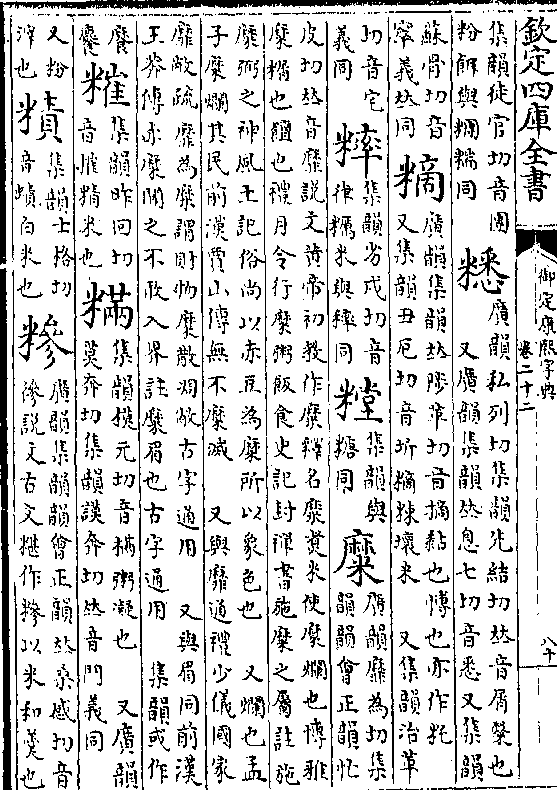 欽定四庫全書
御定康熙字典
卷二十二
八十
集韻徒官切音團
粉餌與糰糯同
𥼀
廣韻私列切集韻先結切𠀤音屑糳也
又廣韻集韻𠀤息七切音悉又集韻
蘇骨切音
窣義𠀤同
䊞
廣韻集韻𠀤陟革切音摘黏也慱也亦作䊞
又集韻丑厄切音㘿䊞𥹝壞米 又集韻治革
切音宅
義同
䊪
集韻劣戌切音
律糲米與䊪同
糛
集韻與
糖同
糜
廣韻靡為切集
韻韻會正韻忙
皮切𠀤音靡說文黃帝初教作糜釋名糜煑米使糜爛也博雅
糜糏也饘也禮月令行糜粥飯食史記封禪書施糜之屬註施
糜粥之神風土記俗尚以赤豆為糜所以象色也 又爛也孟
子糜爛其民前漢賈山傳無不糜滅 又與靡通禮少儀國家
靡敝疏靡為糜謂財物糜散凋敝古字通用 又與眉同前漢
王莽傳赤糜聞之不敢入界註糜眉也古字通用 集韻或作
𪎭
䊫
集韻昨回切
音摧精米也
䊟
集韻模元切音樠粥凝也 又廣韻
莫奔切集韻謨奔切𠀤音門義同
又粉
滓也
𥻽
集韻士格切
音賾白米也
糝
廣韻集韻韻會正韻𠀤桑感切音
㣼說文古文糂作糝以米和羮也